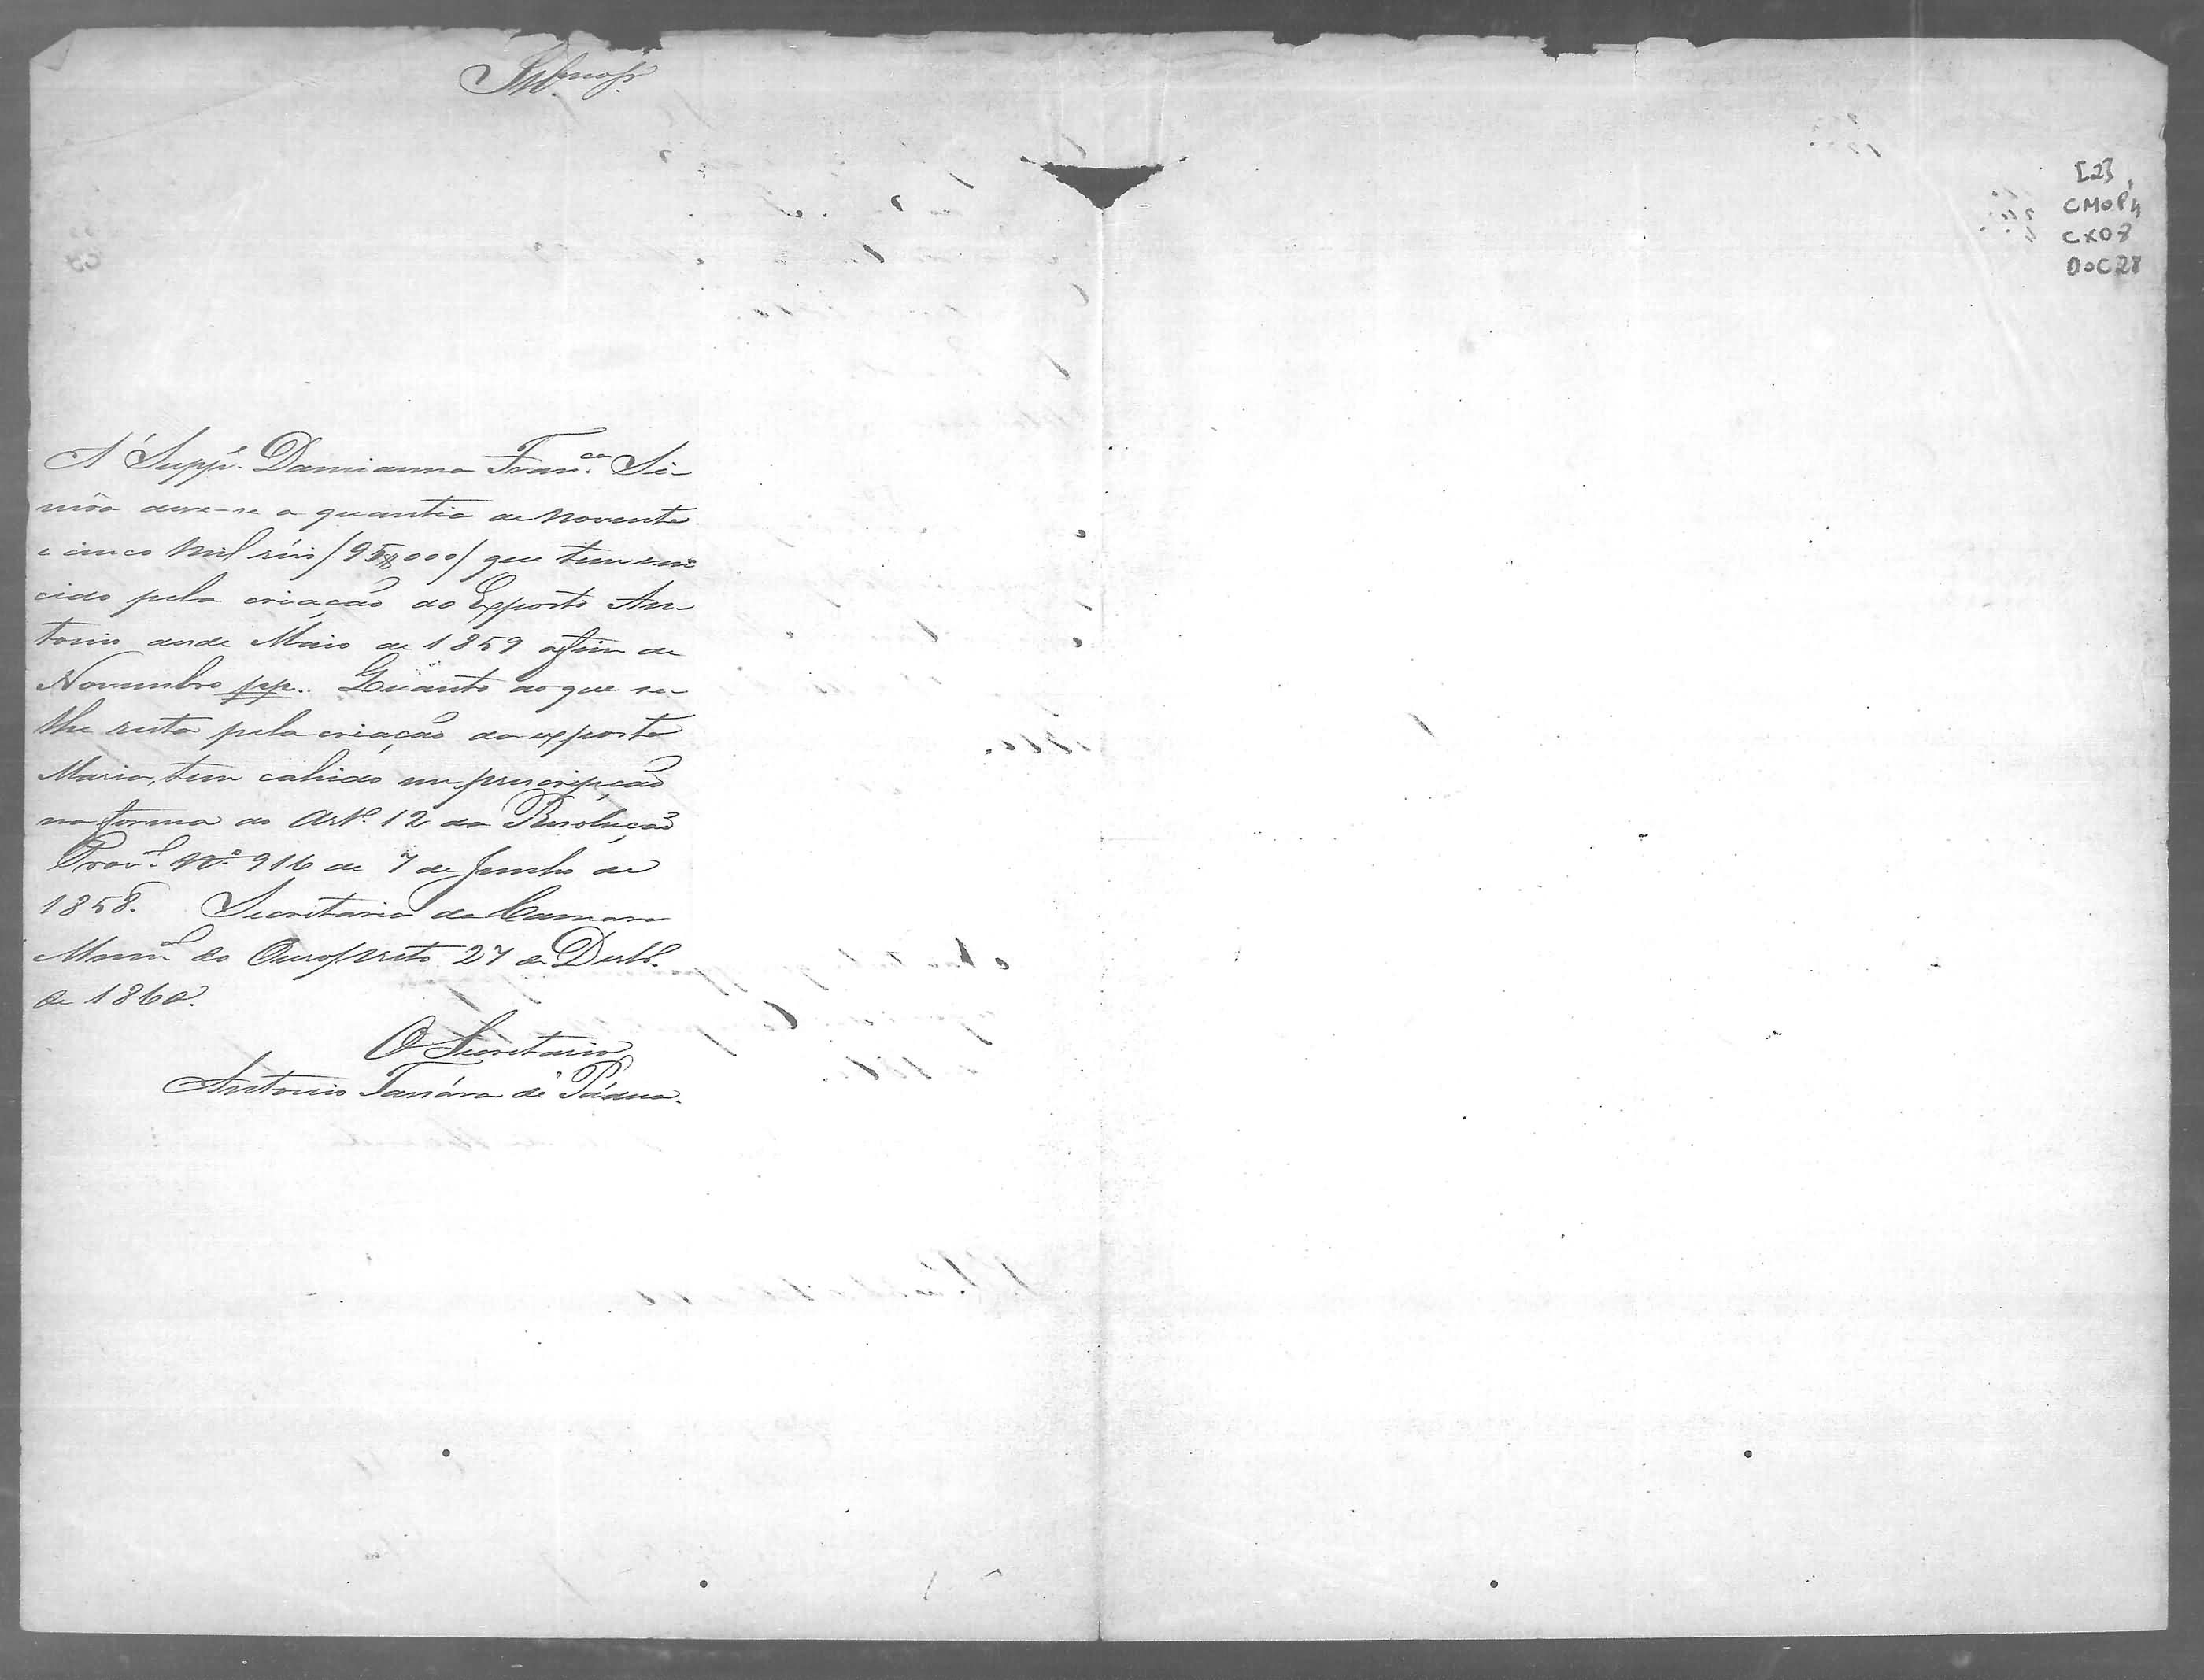 Illmo Sr.
A' Suppe. Damianna Franca. Si-
môa deve-se a quantia de noventa
e cinco mil réis /95$000/ que tem ven
cido pela criação do Exposto An-
tonio desde Maio de 1859 a fim de
Novembro pp. Quanto ao que se
lhe resta pela criação da exposta
Maria, tem cahido em prescripção
na forma do Artº. 12 da Resolução
Provl. Nº. 916 de 7 de Junho de
1858. Secretaria da Camara
Munal. do Ouro preto 27 de Dezbº.
de 1860.
O Secretario
Antonio de Pádua.
[2]
CMOP
CX08
DOC28